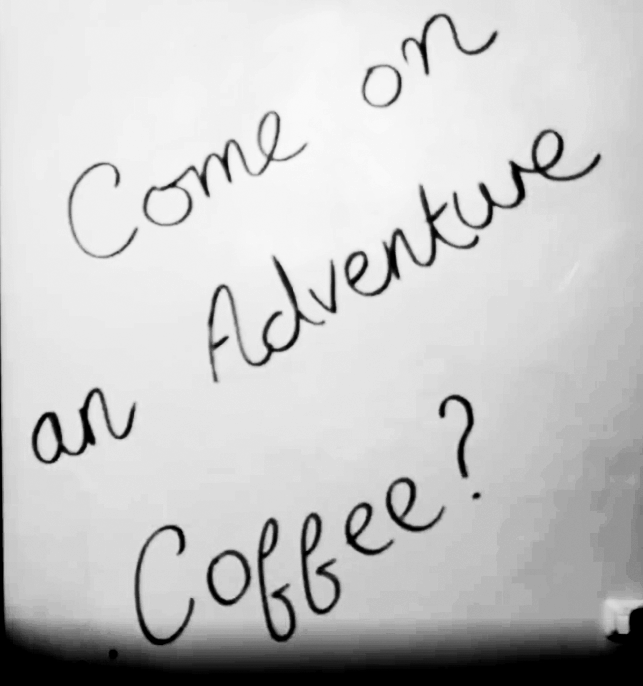 Come on
an Adventure
Coffee?